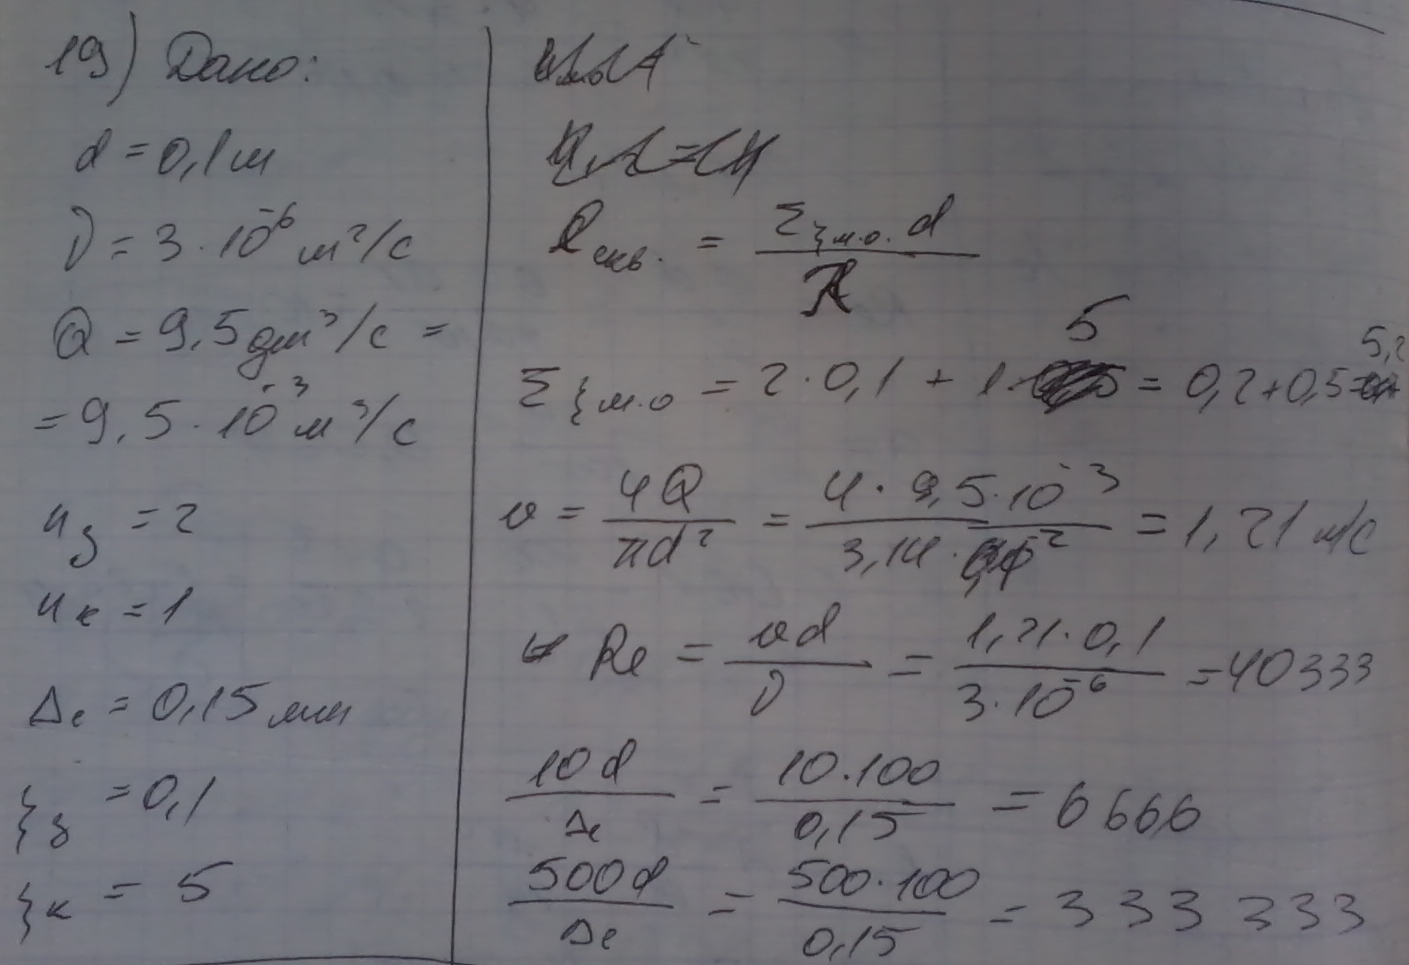 19) Дано:
d = 0,1 м
ν = 3 · 10⁻⁶ м²/с
Q = 9,5 дм³/с =
= 9,5 · 10⁻³ м³/с
n_з = 2
n_к = 1
Δ_е = 0,15 мм
ξ_з = 0,1
ξ_к = 5
l_экв. = Σξ_м.о. d / λ
Σξ_м.о = 2 · 0,1 + 1 · 5 = 0,2 + 0,5 = 5,2
v = 4Q / πd² = 4 · 9,5 · 10⁻³ / 3,14 · 0,1² = 1,21 м/с
Re = vd / ν = 1,21 · 0,1 / 3 · 10⁻⁶ = 40333
10d / Δ_е = 10 · 100 / 0,15 = 6666
500d / Δ_е = 500 · 100 / 0,15 = 333 333